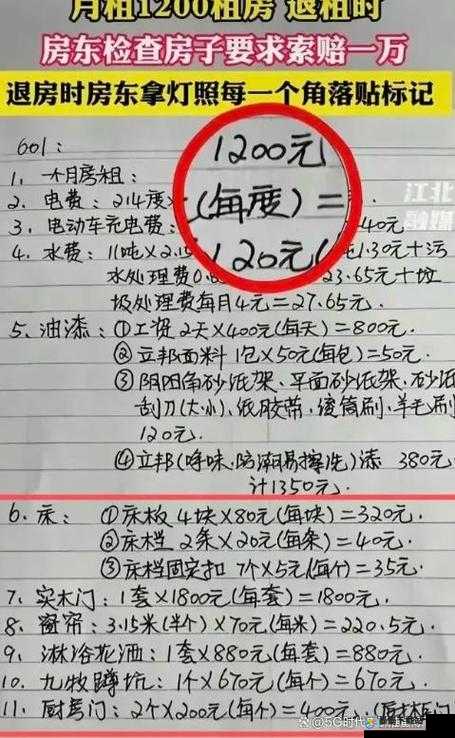 月租1200租房 退租时
房东检查房子要求索赔一万
退房时房东拿灯照每一个角落贴标记
601：
1200元
1. 一个月房租：
2. 电费：214度×
(每度)＝
3. 电动车充电费：
40元
120元(
4. 水费：11吨×2.15
1.30元＋污
水处理费0.8
23.65元＋垃
圾处理费每月4元＝27.65元.
5. 油漆：①工资 2天×400元(每天)＝800元.
②立邦面料 1包×50元(每包)＝50元.
③阴阳角砂纸架、平面砂纸架、砂纸
刮刀(大小)、纸胶带、滚筒刷、羊毛刷
120元.
④立邦(净味、防潮易擦洗)漆 380元
计1350元.
6. 床：①床板 4块×80元(每块)＝320元.
②床档 2条×20元(每条)＝40元.
③床档固定扣 7个×5元(每个)＝35元.
7. 实木门：1套×1800元(每套)＝1800元.
8. 窗帘：3.15米(半个)×70元(每米)＝220.5元.
9. 淋浴花洒：1套×880元(每套)＝880元.
10. 九牧蹲坑：1个×670元(每个)＝670元.
11. 厨房门：2个×200元(每个)＝400元.
@5G时代